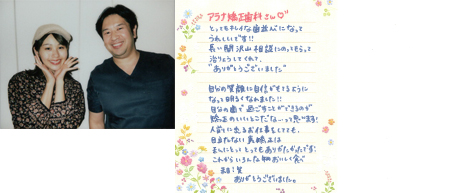 アラナ矯正歯科さん♡
とってもキレイな歯並びになって
うれしいです!!
長い間沢山相談にのってもらって
治りょうしてくれて、
"ありがとうございました"
自分の笑顔に自信がもてるように
なって明るくなれました!!
自分の歯で過ごすことができるのが
矯正のいいところだな〜って思います!
人前に出るお仕事をしてても、
目立たない裏矯正は
ほんにとってもありがたかったです!
これからいろんな物おいしく食べ
ありがとうございました。